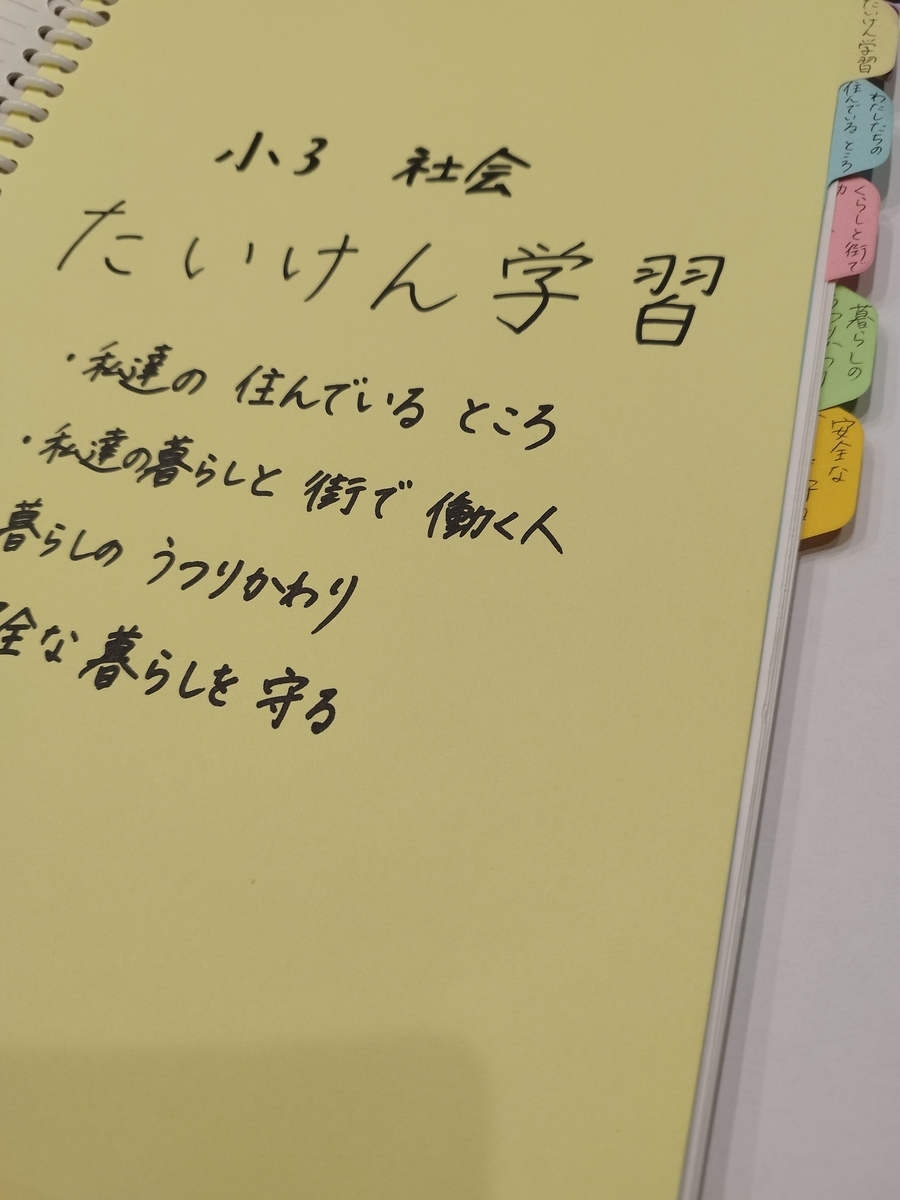 小3 社会
たいけん学習
・私達の 住んでいる ところ
・私達の暮らしと 街で 働く人
暮らしの うつりかわり
全な 暮らしを 守る
たいけん学習
わたしたちの
住んでいる ところ
くらしと街で
暮らしの
安全な